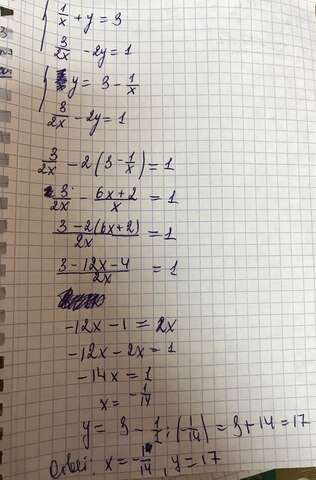 1/x + y = 3
3/2x - 2y = 1
y = 3 - 1/x
3/2x - 2y = 1
3/2x - 2(3 - 1/x) = 1
3/2x - 6x+2/x = 1
3-2(6x+2)/2x = 1
3-12x-4/2x = 1
-12x-1 = 2x
-12x-2x = 1
-14x = 1
x = -1/14
y = 3 - 1/1 : (-1/14) = 3+14 = 17
Ответ: x = -1/14, y = 17